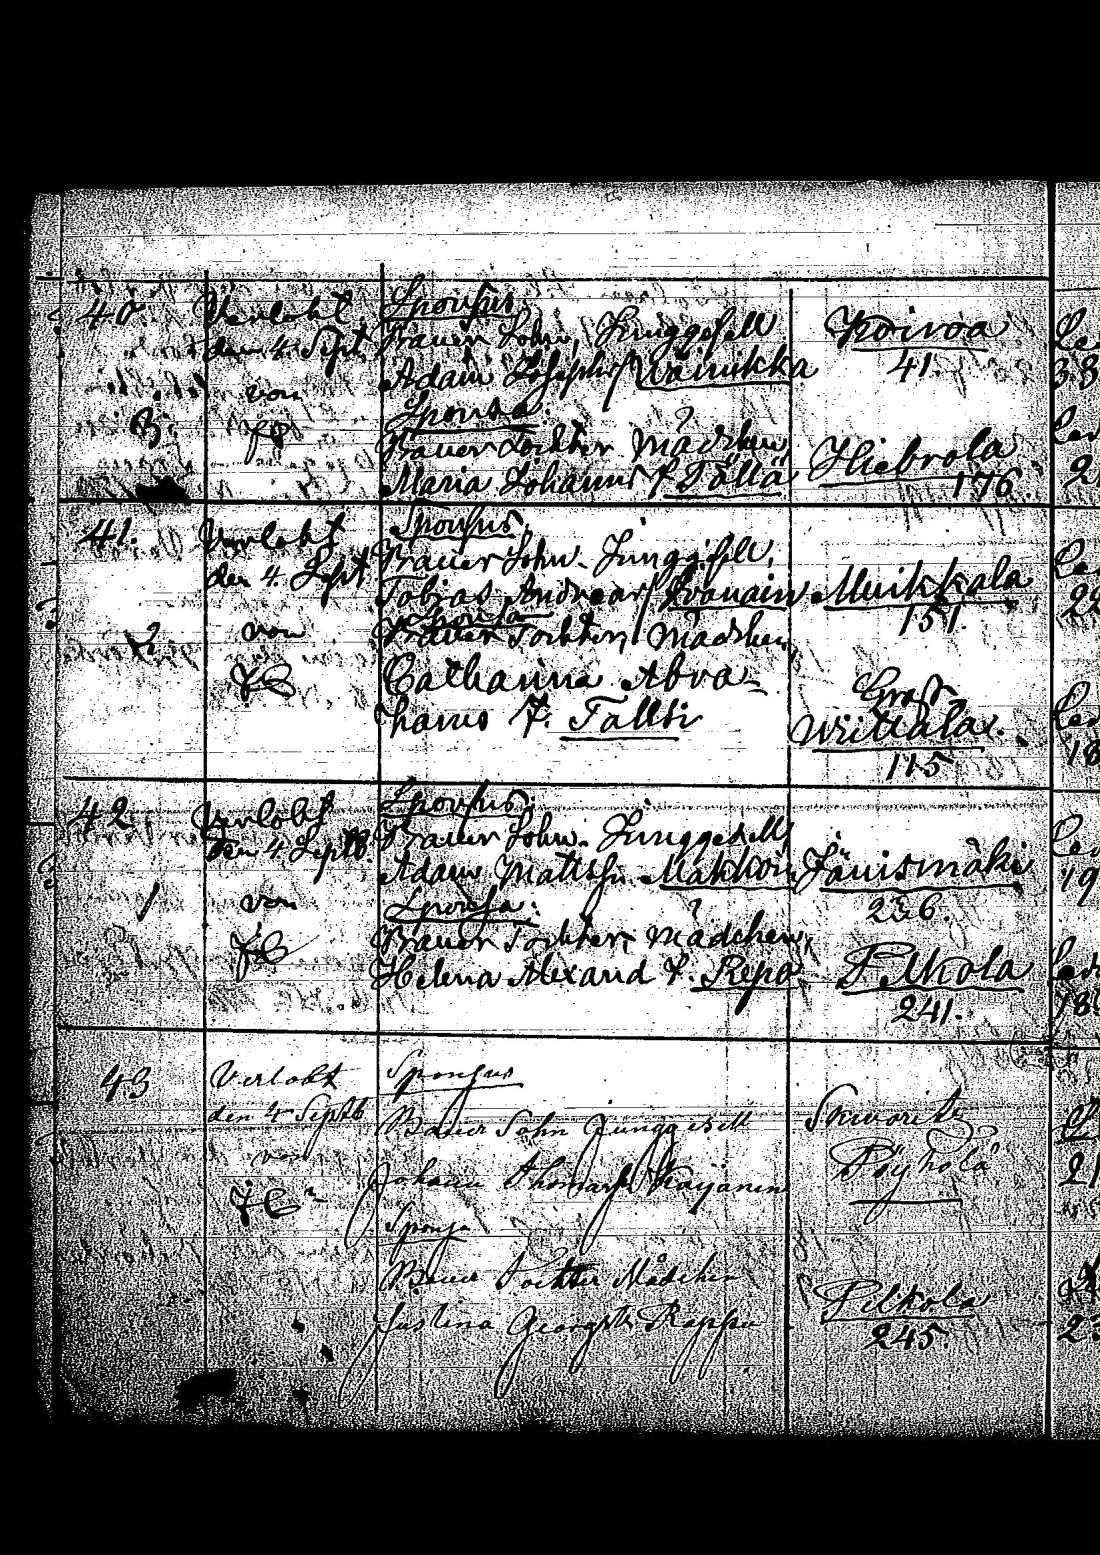 40.
Verlobt
den 4. Sept.
von
3.
Sponsus.
Bauer Sohn, Junggesell
Adam Josephs Wainikka
Sponsa.
Bauer Tochter Mädchen,
Maria Johanns T. Tällä
Koiroa
41.
Hiebrola
176.
41.
Verlobt
den 4. Sept.
von
2
Sponsus.
Bauer Sohn. Junggesell,
Tobias Andreas Iwanain
Sponsa
Bauer Tochter, Mädchen,
Catharina Abra-
hams T. Tallsi
Muikkala
151.
Groß
Wittala.
115
42.
Verlobt
den 4. Septb.
von
1
Sponsus.
Bauer Sohn. Junggesell
Adam Matths. Makkoin
Sponsa:
Bauer Tochter, Mädchen,
Helena Alexand T. Repo
Jänismäki
236.
Pelkola
241.
43
Verlobt
den 4 Septb
von
Sponsus
Bauer Sohn Junggesell
Johann Thomas Kaijanen
Sponsa
Bauer Tochter Mädchen
Justina Georgs T. Rappu
Skworitz
Pöijholä
Pelkola
245.